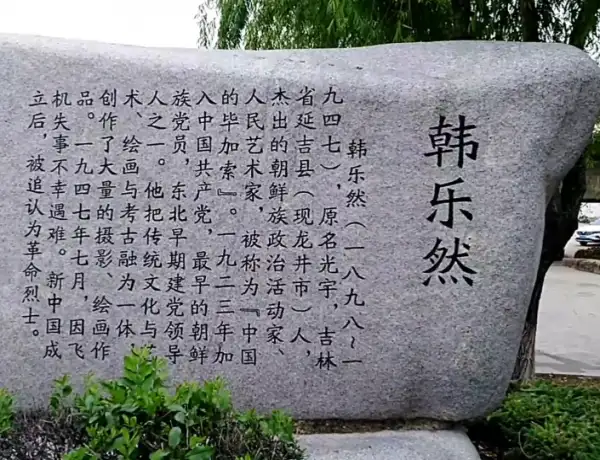 韩乐然
韩乐然（一八九八~一
九四七），原名光宇，吉林
省延吉县（现龙井市）人，
杰出的朝鲜族政治活动家、
人民艺术家，被称为『中国
的毕加索』。一九二三年加
入中国共产党，最早的朝鲜
族党员，东北早期建党领导
人之一。他把传统文化与艺
术、绘画与考古融为一体，
创作了大量的摄影、绘画作
品。一九四七年七月，因飞
机失事不幸遇难。新中国成
立后，被追认为革命烈士。